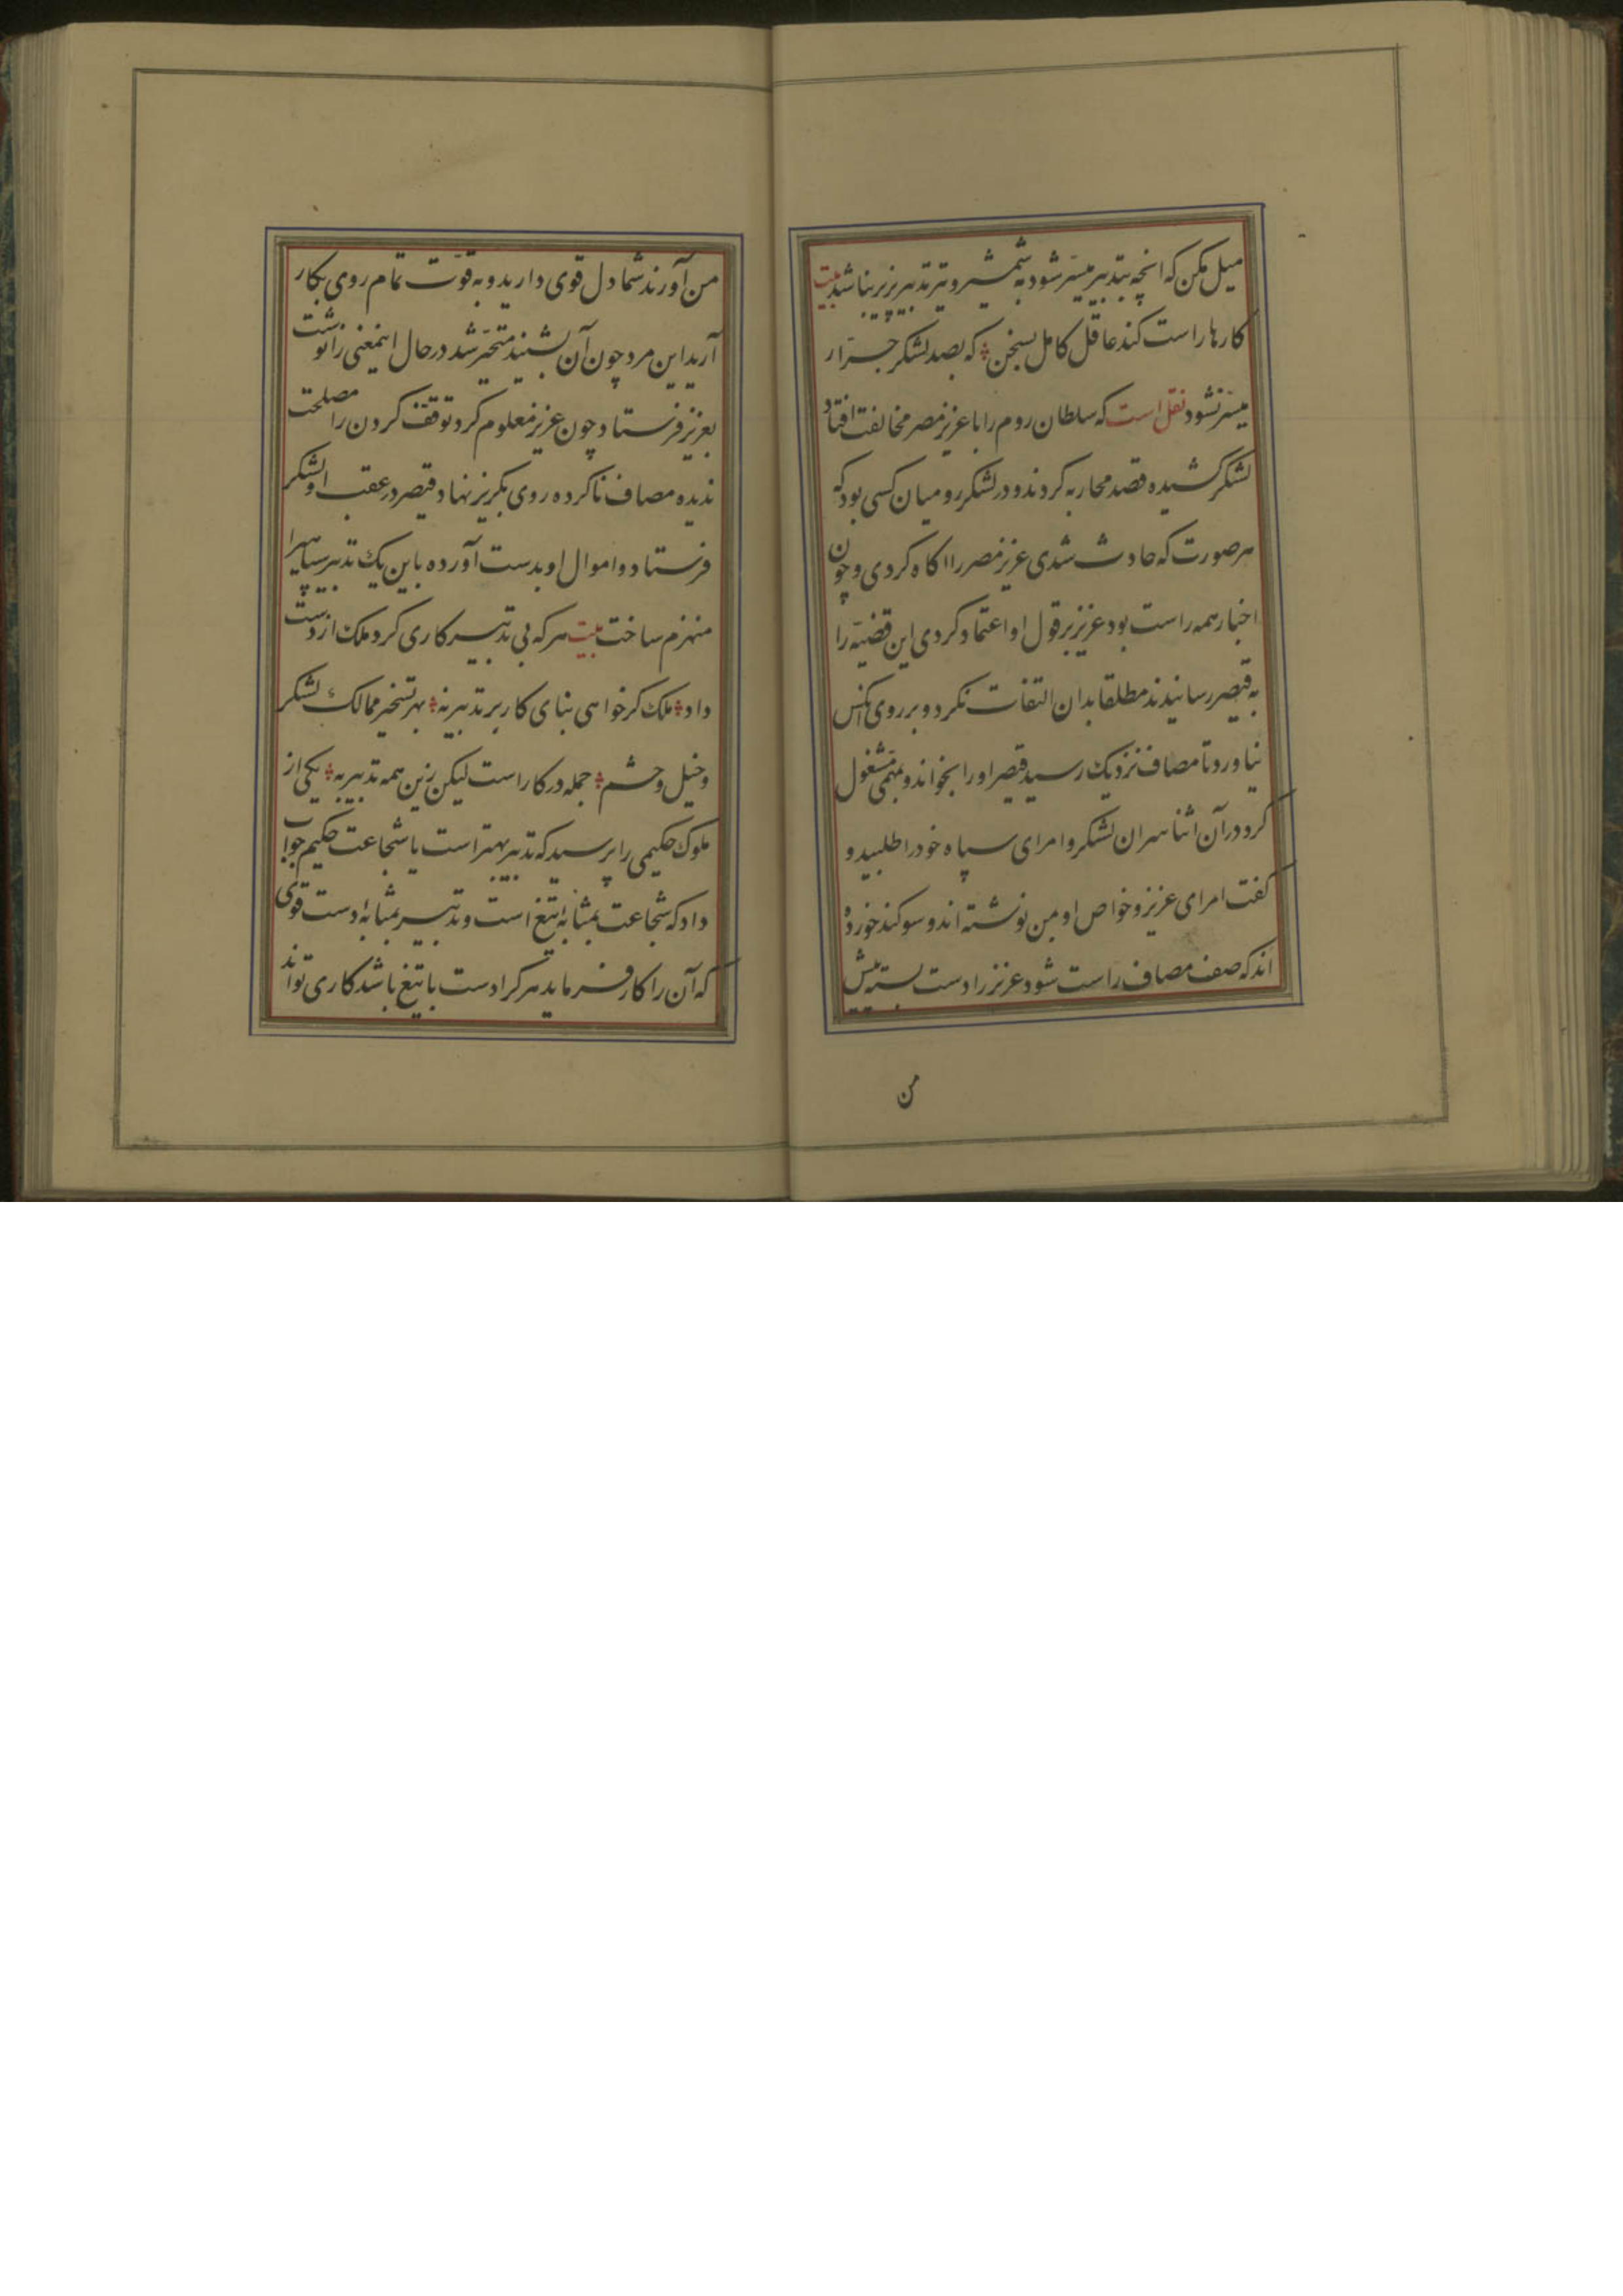 میل مکن که انچه بتدبیر میسّر شود به شمشیر و تیر تدبیر پزیر نباشد بیت
کارها راست کند عاقل کامل بسخن که بصد لشکر جرّار
میسّر نشود نقل است که سلطان روم را با عزیز مصر مخالفت افتاد
لشکر کشیده قصد محاربه کردند و در لشکر رومیان کسی بود که
هر صورت که حادث شدی عزیز مصر را اکاه کردی و چون
اخبار همه راست بود عزیز بر قول او اعتماد کردی این قضیّه را
به قیصر رسانیدند مطلقا بدان التفات نکرد و بر روی انکس
نیاورد تا مصاف نزدیک رسید قیصر او را بخواند و بمهمی مشغول
کرد در آن اثنا سران لشکر و امرای سپاه خود را طلبید و
کفت امرای عزیز و خواص او بمن نوشته اند و سوکند خورده
اند که صف مصاف راست شود عزیز را دست بسته پیش
من
من آورند شما دل قوی دارید و به قوّت تمام روی بکار
آرید این مرد چون آن بشنید متحیّر شد در حال اینمعنی را نوشت
بعزیز فرستاد چون عزیز معلوم کرد توقف کردن را مصلحت
ندیده مصاف ناکرده روی بکریز نهاد قیصر در عقب او لشکر
فرستاد و اموال او بدست آورده باین یک تدبیر سپاهیرا
منهزم ساخت بیت هر که بی تدبیر کاری کرد ملک از دست
داد ملک کر خواهی بنای کار بر تدبیر نه بهر تسخیر ممالک لشکر
و خیل و حشم جمله در کار است لیکن زین همه تدبیر به یکی از
ملوک حکیمی را پرسید که تدبیر بهتر است یا شجاعت حکیم جواب
داد که شجاعت بمثابهٔ تیغ است و تدبیر بمثابهٔ دست قوی
که آن را کار فرماید هر کرا دست با تیغ باشد کاری تواند